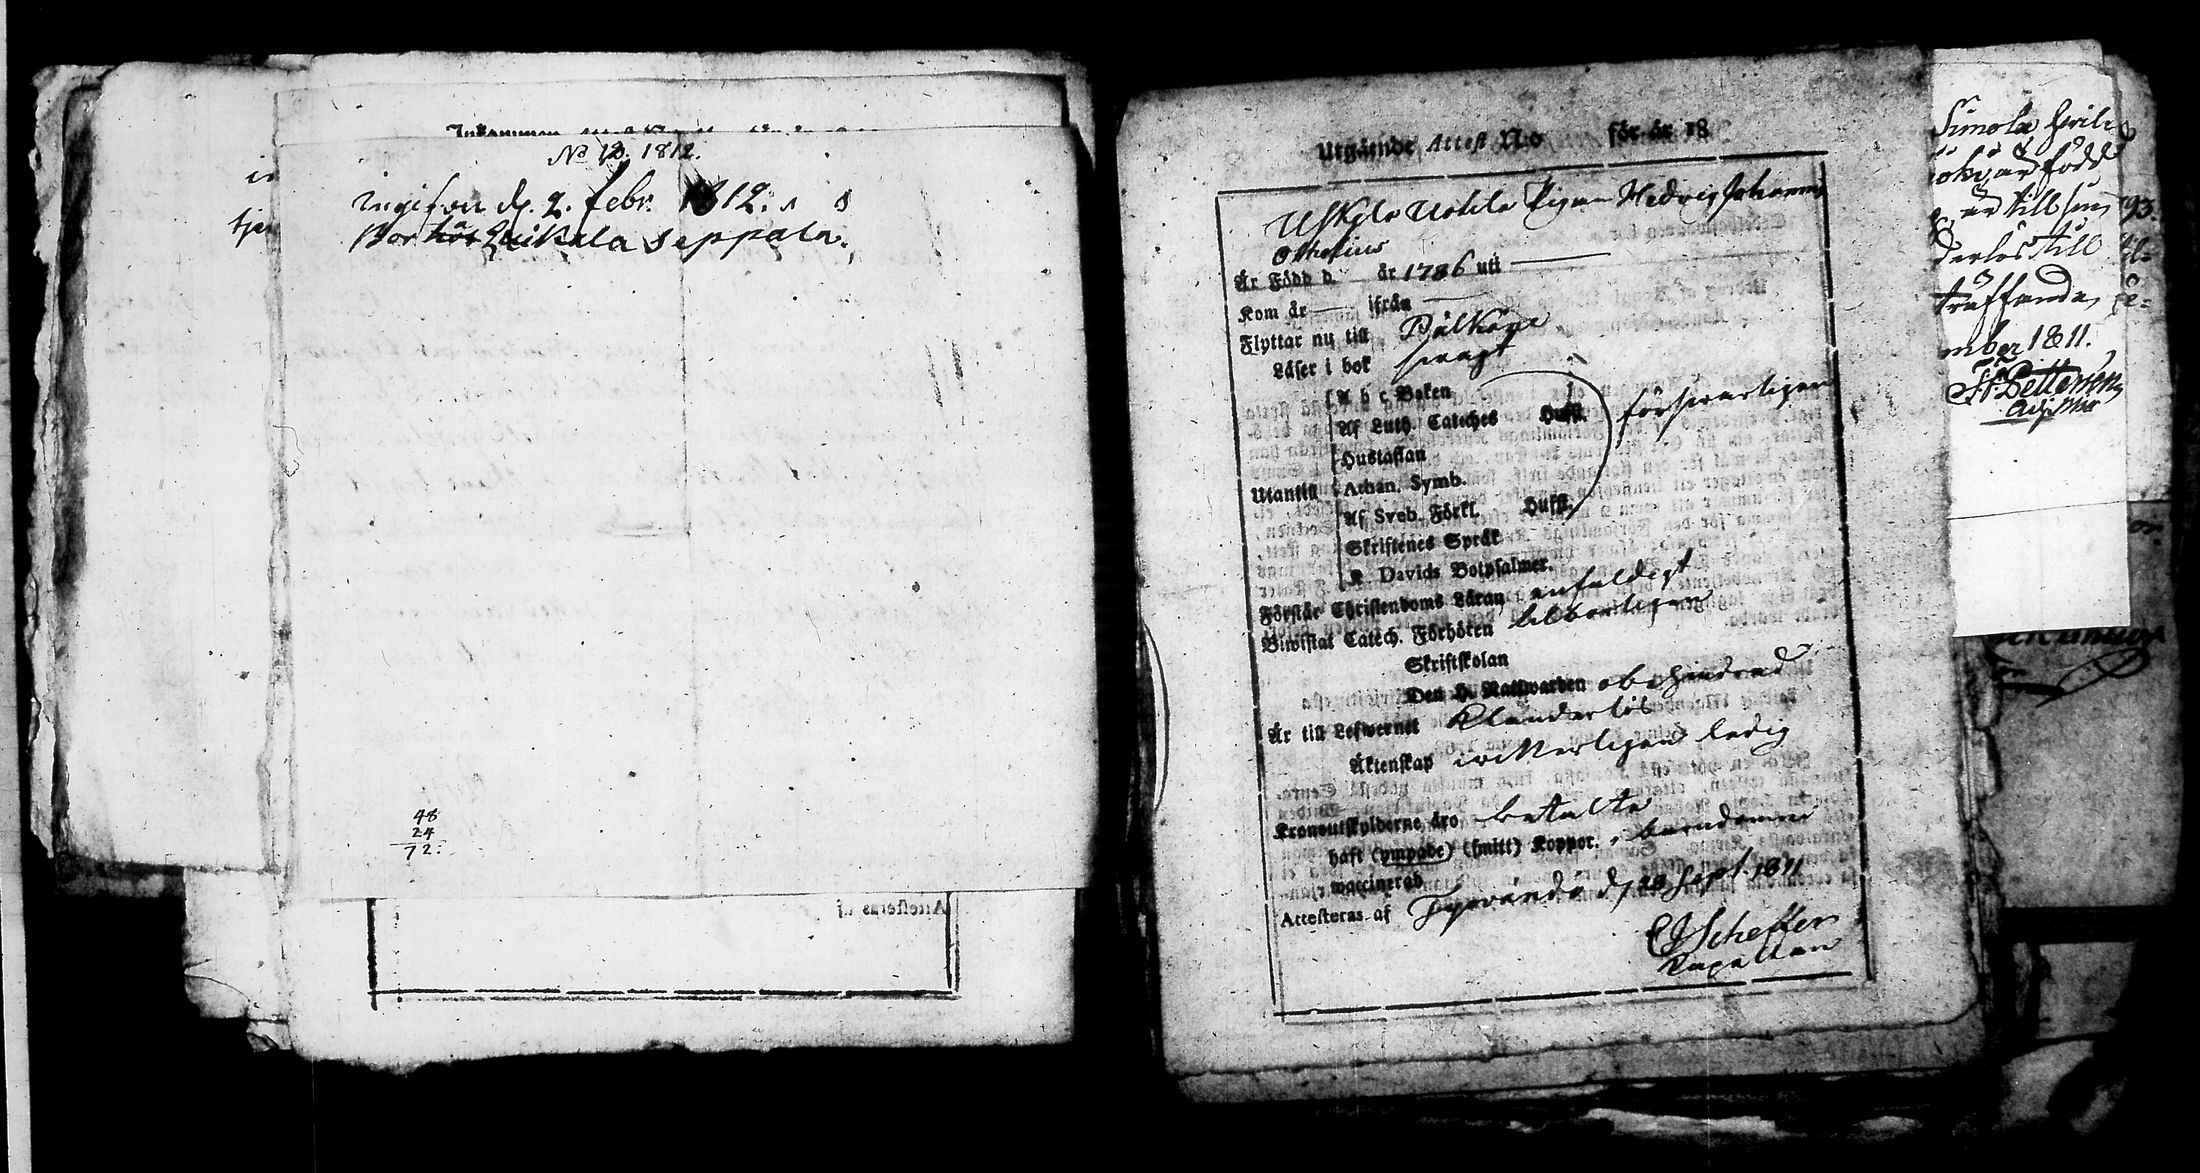 No 13. 1812.
ingifven d. 2. febr. 1812.
Bor hos Luikala Seppala.
48
24
72.
Attesteras af
Utgående Attest N:o för år 18
Uskila Uotila Pigan Hedvig Johanna
Othelius
Är Född d. år 1786 uti
Kom år ifrån
Flyttar nu till Pälkäne
Läser i bok svagt
A b c Boken
Af Luth. Cateches Hufst. försvarligen
Hustaflan
Utantill Athan. Symb.
Af Sveb. Förkl. Hufst.
Skriftenes Språk
K. Davids Botpsalmer.
Förstår Christendoms Läran enfaldigt
Biwistat Catech. Förhören
Skriftskolan
Den H. Nattwarden obehindrad
Är till Lefwernet Klanderlös
Äktenskap witterligen ledig
Kronoutskylderne äro betalte
haft (ympade) (smitt) Koppor. i barndomen
waccinerad
Attesteras af Tyrvändö d. 28 Sept. 1811
CJ Scheffer
Kapellan
Simola
född
an till sin
derlös till
träffande
mber 1811.
Petterson
Adj. Min